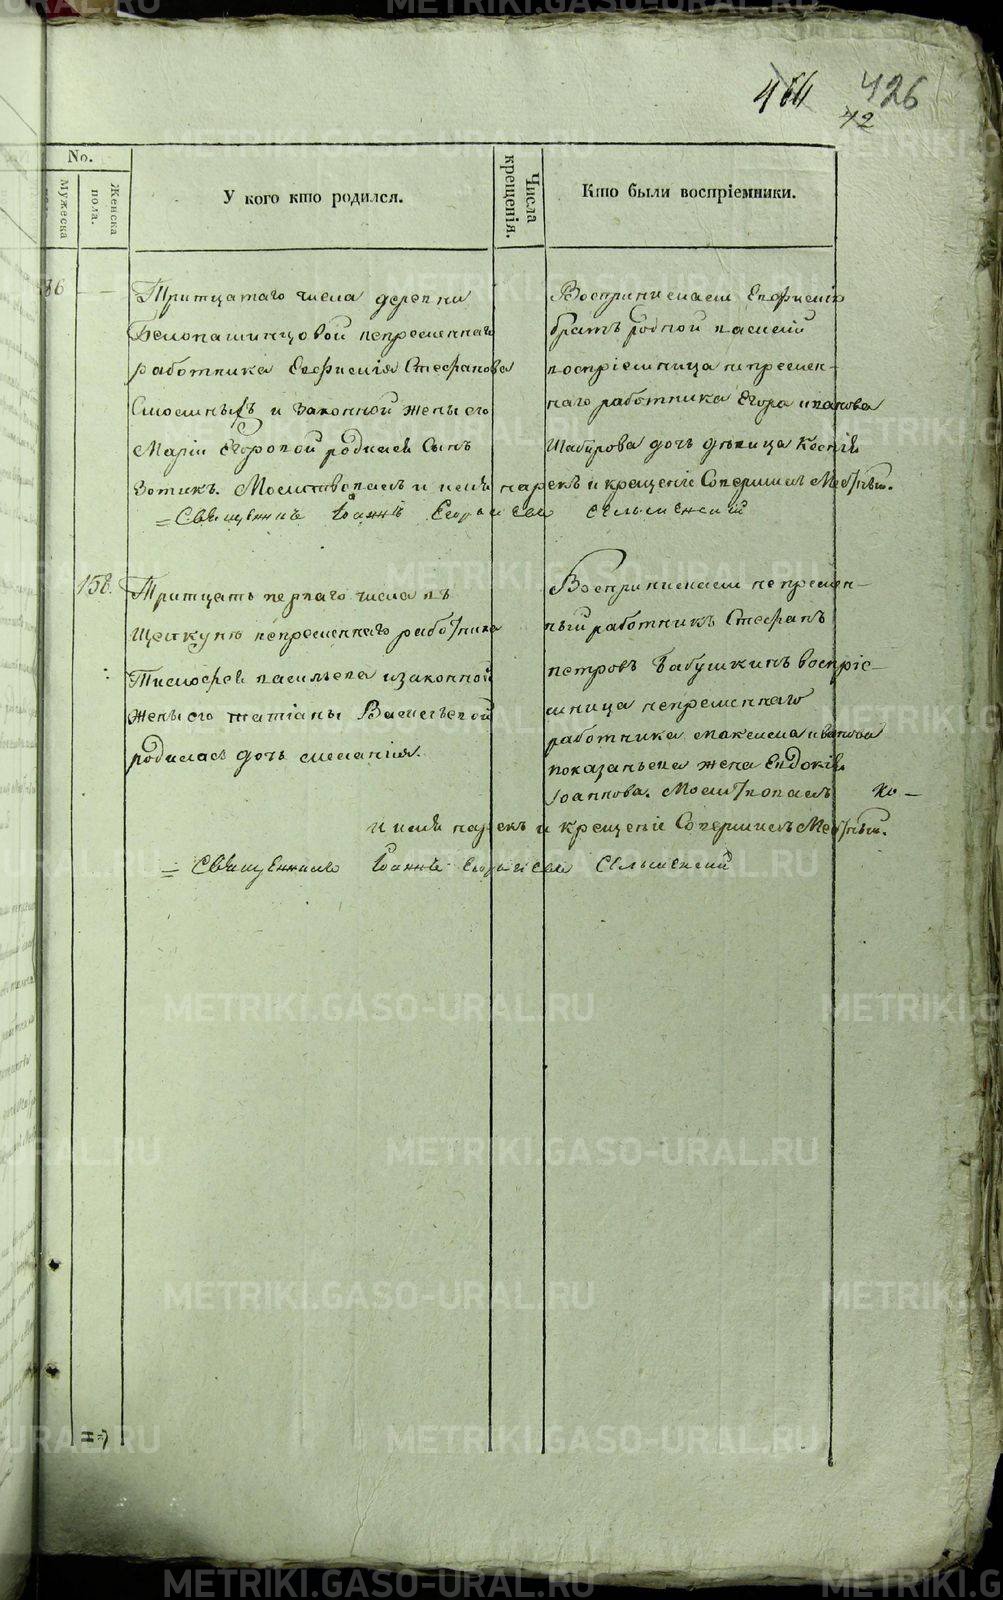 464 426
42
No.
Мужеска
Женска
пола.
У кого кто родился.
Числа
крещенія.
Кто были воспріемники.
86
Тритцатаго числа деревни
непременнаго
работника Евфимія Стефанова
и законной жены его
Маріи Егоровой родился сынъ
Зотикъ. Молитвовалъ и имя нарекъ и крещеніе Совершилъ
= Священникъ Іоаннъ Сельменскій
Воспринималъ Евфимія
братъ родной василій
воспріемница непремен-
наго работника Егора иванова
Шабурова дочь девица Ксенія
158.
Тритцать перваго числа въ
непременнаго работника
Тимофея васильева изаконной
жены его татіаны Васильевой
родилась дочь меланія.
Воспринималъ непремен-
ный работникъ Стефанъ
петровъ бабушкинъ воспріе-
мница непременнаго
работника максима иванова
показаньева жена Евдокія
Іоаннова. Молитвовалъ
и имя нарекъ и крещеніе Совершилъ
= Священникъ Іоаннъ Сельменскій
METRIKI.GASO-URAL.RU